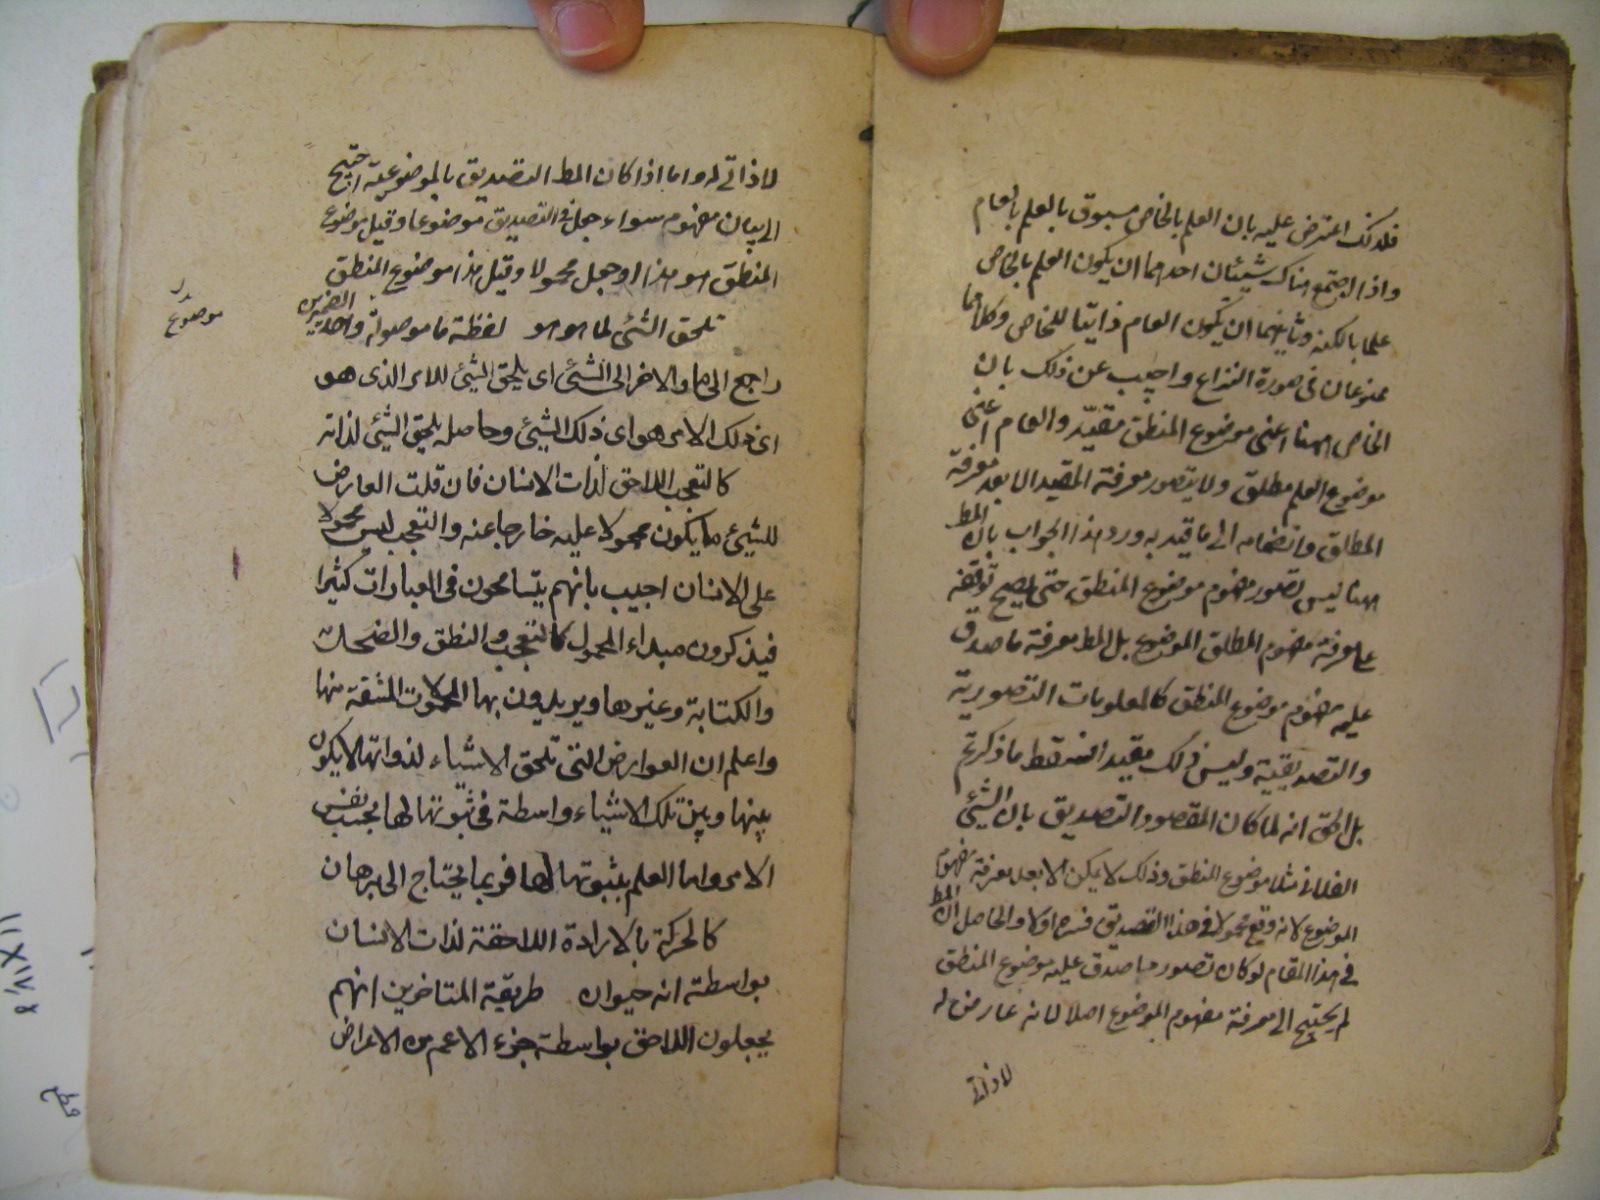 فلذلك اعترض عليه بان العلم بالخاص مسبوق بالعلم بالعام
واذا اجتمع هناك شيئان احدهما ان يكون العلم بالخاص
علما بالكنه وثانيهما ان يكون العام ذاتيا للخاص وكلاهما
ممنوعان في صورة النزاع واجيب عن ذلك بان
الخاص ههنا اعنى موضوع المنطق مقيّد والعام اعنى
موضوع العلم مطلق ولا يتصور معرفة المقيد الا بعد معرفة
المطلق وانضمامه الى ما قيد به ورد هذا الجواب بان المط
ههنا ليس تصور مفهوم موضوع المنطق حتى يصح توقفه
على معرفة مفهوم المطلق الموضوع بل المط معرفة ما صدق
عليه مفهوم موضوع المنطق كالمعلومات التصورية
والتصديقية وليس ذلك مقيد ما ذكرتم
بل الحق انه لما كان المقصود التصديق بان الشئ
الفلانى مثلا موضوع المنطق وذلك لا يمكن الا بعد معرفة مفهوم
الموضوع لانه وقع محمولا في هذا التصديق فسره اولا والحاصل ان المط
في هذا المقام لو كان تصور ما صدق عليه موضوع المنطق
لم يحتج الى معرفة مفهوم الموضوع اصلا لانه عارض له
لا ذاتى
لا ذاتى له واما اذا كان المط التصديق بالموضوعية احتيج
الى بيان مفهوم سواء جعل في التصديق موضوعا وقيل موضوع
المنطق هو هذا او جعل محمولا وقيل هذا موضوع المنطق
تلحق الشئ لما هو هو لفظة ما موصولة واحد الضميرين
راجع الى ما والاخر الى الشئ اى يلحق الشئ للامر الذى هو
اى ذلك الامر هو اى ذلك الشئ وحاصله يلحق الشئ لذاته
كالتعجب اللاحق لذات الانسان فان قلت العارض
للشئ ما يكون محمولا عليه خارجا عنه والتعجب ليس محمولا
على الانسان اجيب بانهم يتسامحون في العبارات كثيرا
فيذكرون مبداء المحمول كالتعجب والنطق والضحك
والكتابة وغيرها ويريدون بها المحمولات المشتقة منها
واعلم ان العوارض التى تلحق الاشياء لذواتها لا يكون
بينها وبين تلك الاشياء واسطة في ثبوتها لها بحسب نفس
الامر واما العلم بثبوتها لها فربما يحتاج الى برهان
كالحركة بالارادة اللاحقة لذات الانسان
بواسطة انه حيوان طريقة المتاخرين انهم
يجعلون اللاحق بواسطة جزء الاعم من الاعراض
موضوع